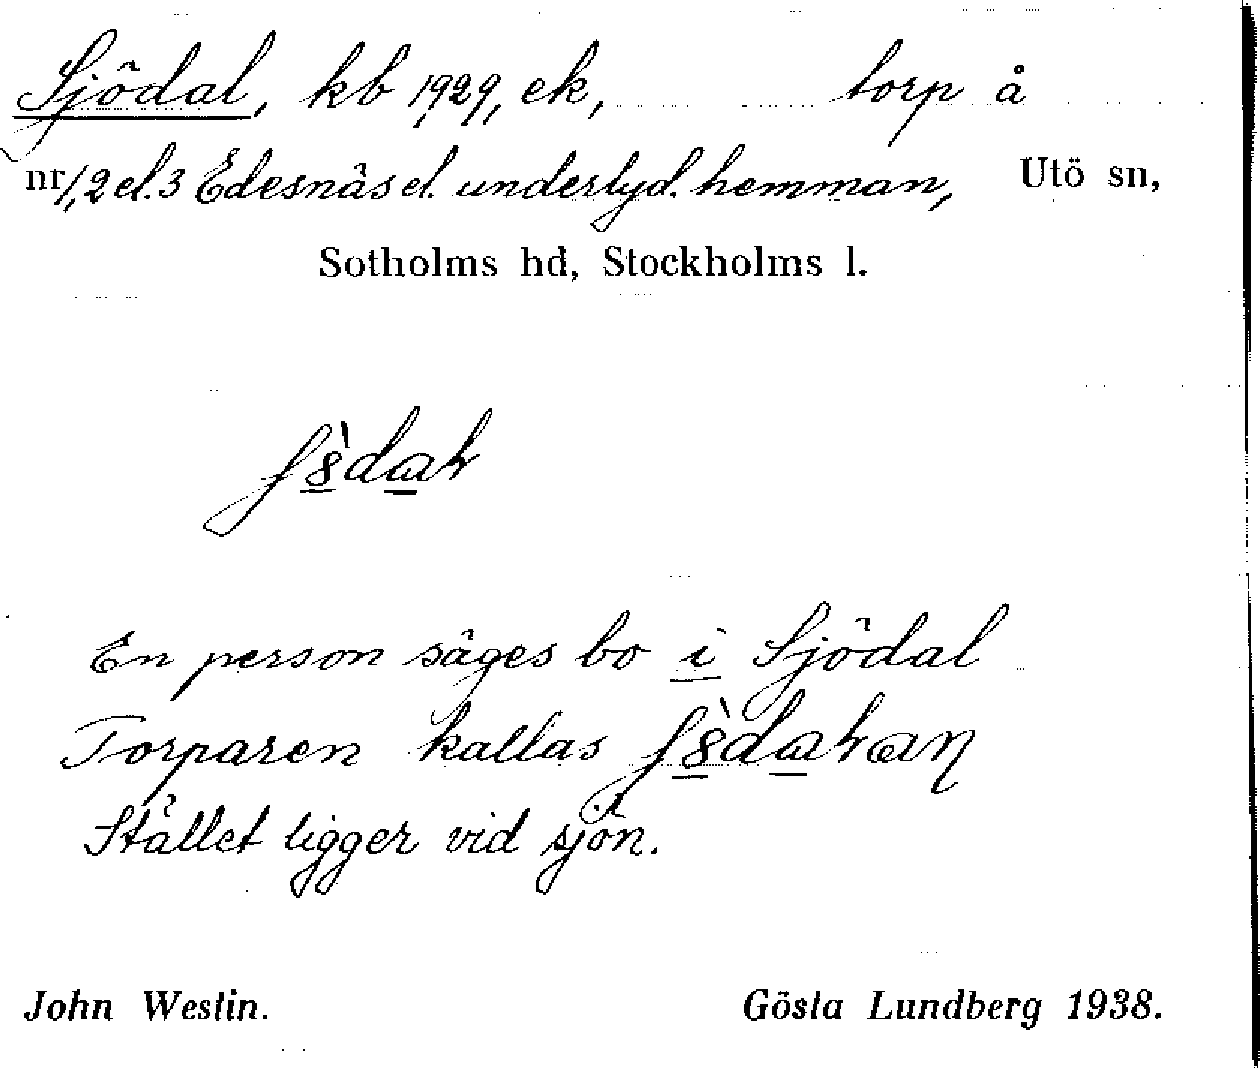 Sjödal, kb 1929, ek, torp å
nr 1, 2 el. 3 Edesnäs el. underlyd. hemman, Utö sn,
Sotholms hd, Stockholms l.
En person säges bo i Sjödal
Torparen kallas
Stället ligger vid sjön.
John Westin.
Gösta Lundberg 1938.